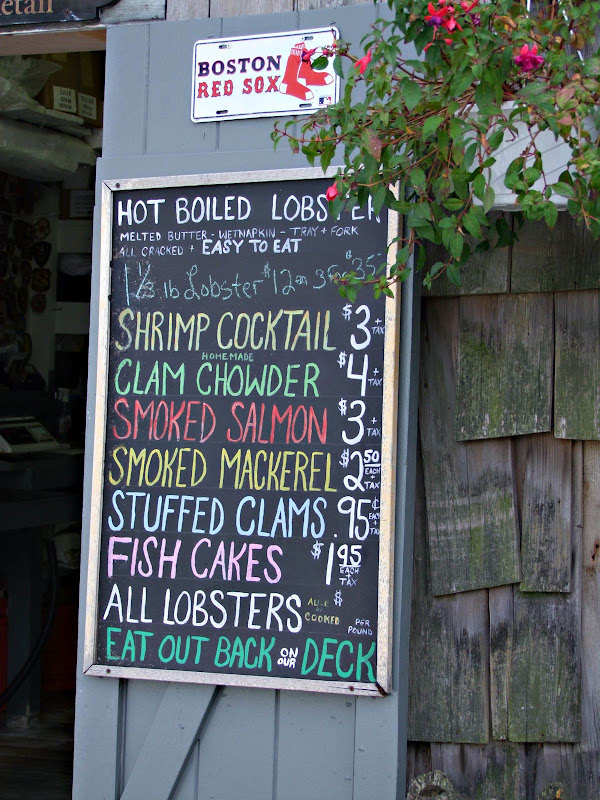 etail
BOSTON
RED SOX
HOT BOILED LOBSTER
MELTED BUTTER - WETNAPKIN - TRAY + FORK
ALL CRACKED + EASY TO EAT
lb Lobster $12
SHRIMP COCKTAIL $3 + TAX
HOMEMADE
CLAM CHOWDER $4 + TAX
SMOKED SALMON $3 + TAX
SMOKED MACKEREL $2.50 EACH + TAX
STUFFED CLAMS .95¢ EACH + TAX
FISH CAKES $1.95 EACH + TAX
ALL LOBSTERS ALIVE OR COOKED $ PER POUND
EAT OUT BACK ON OUR DECK